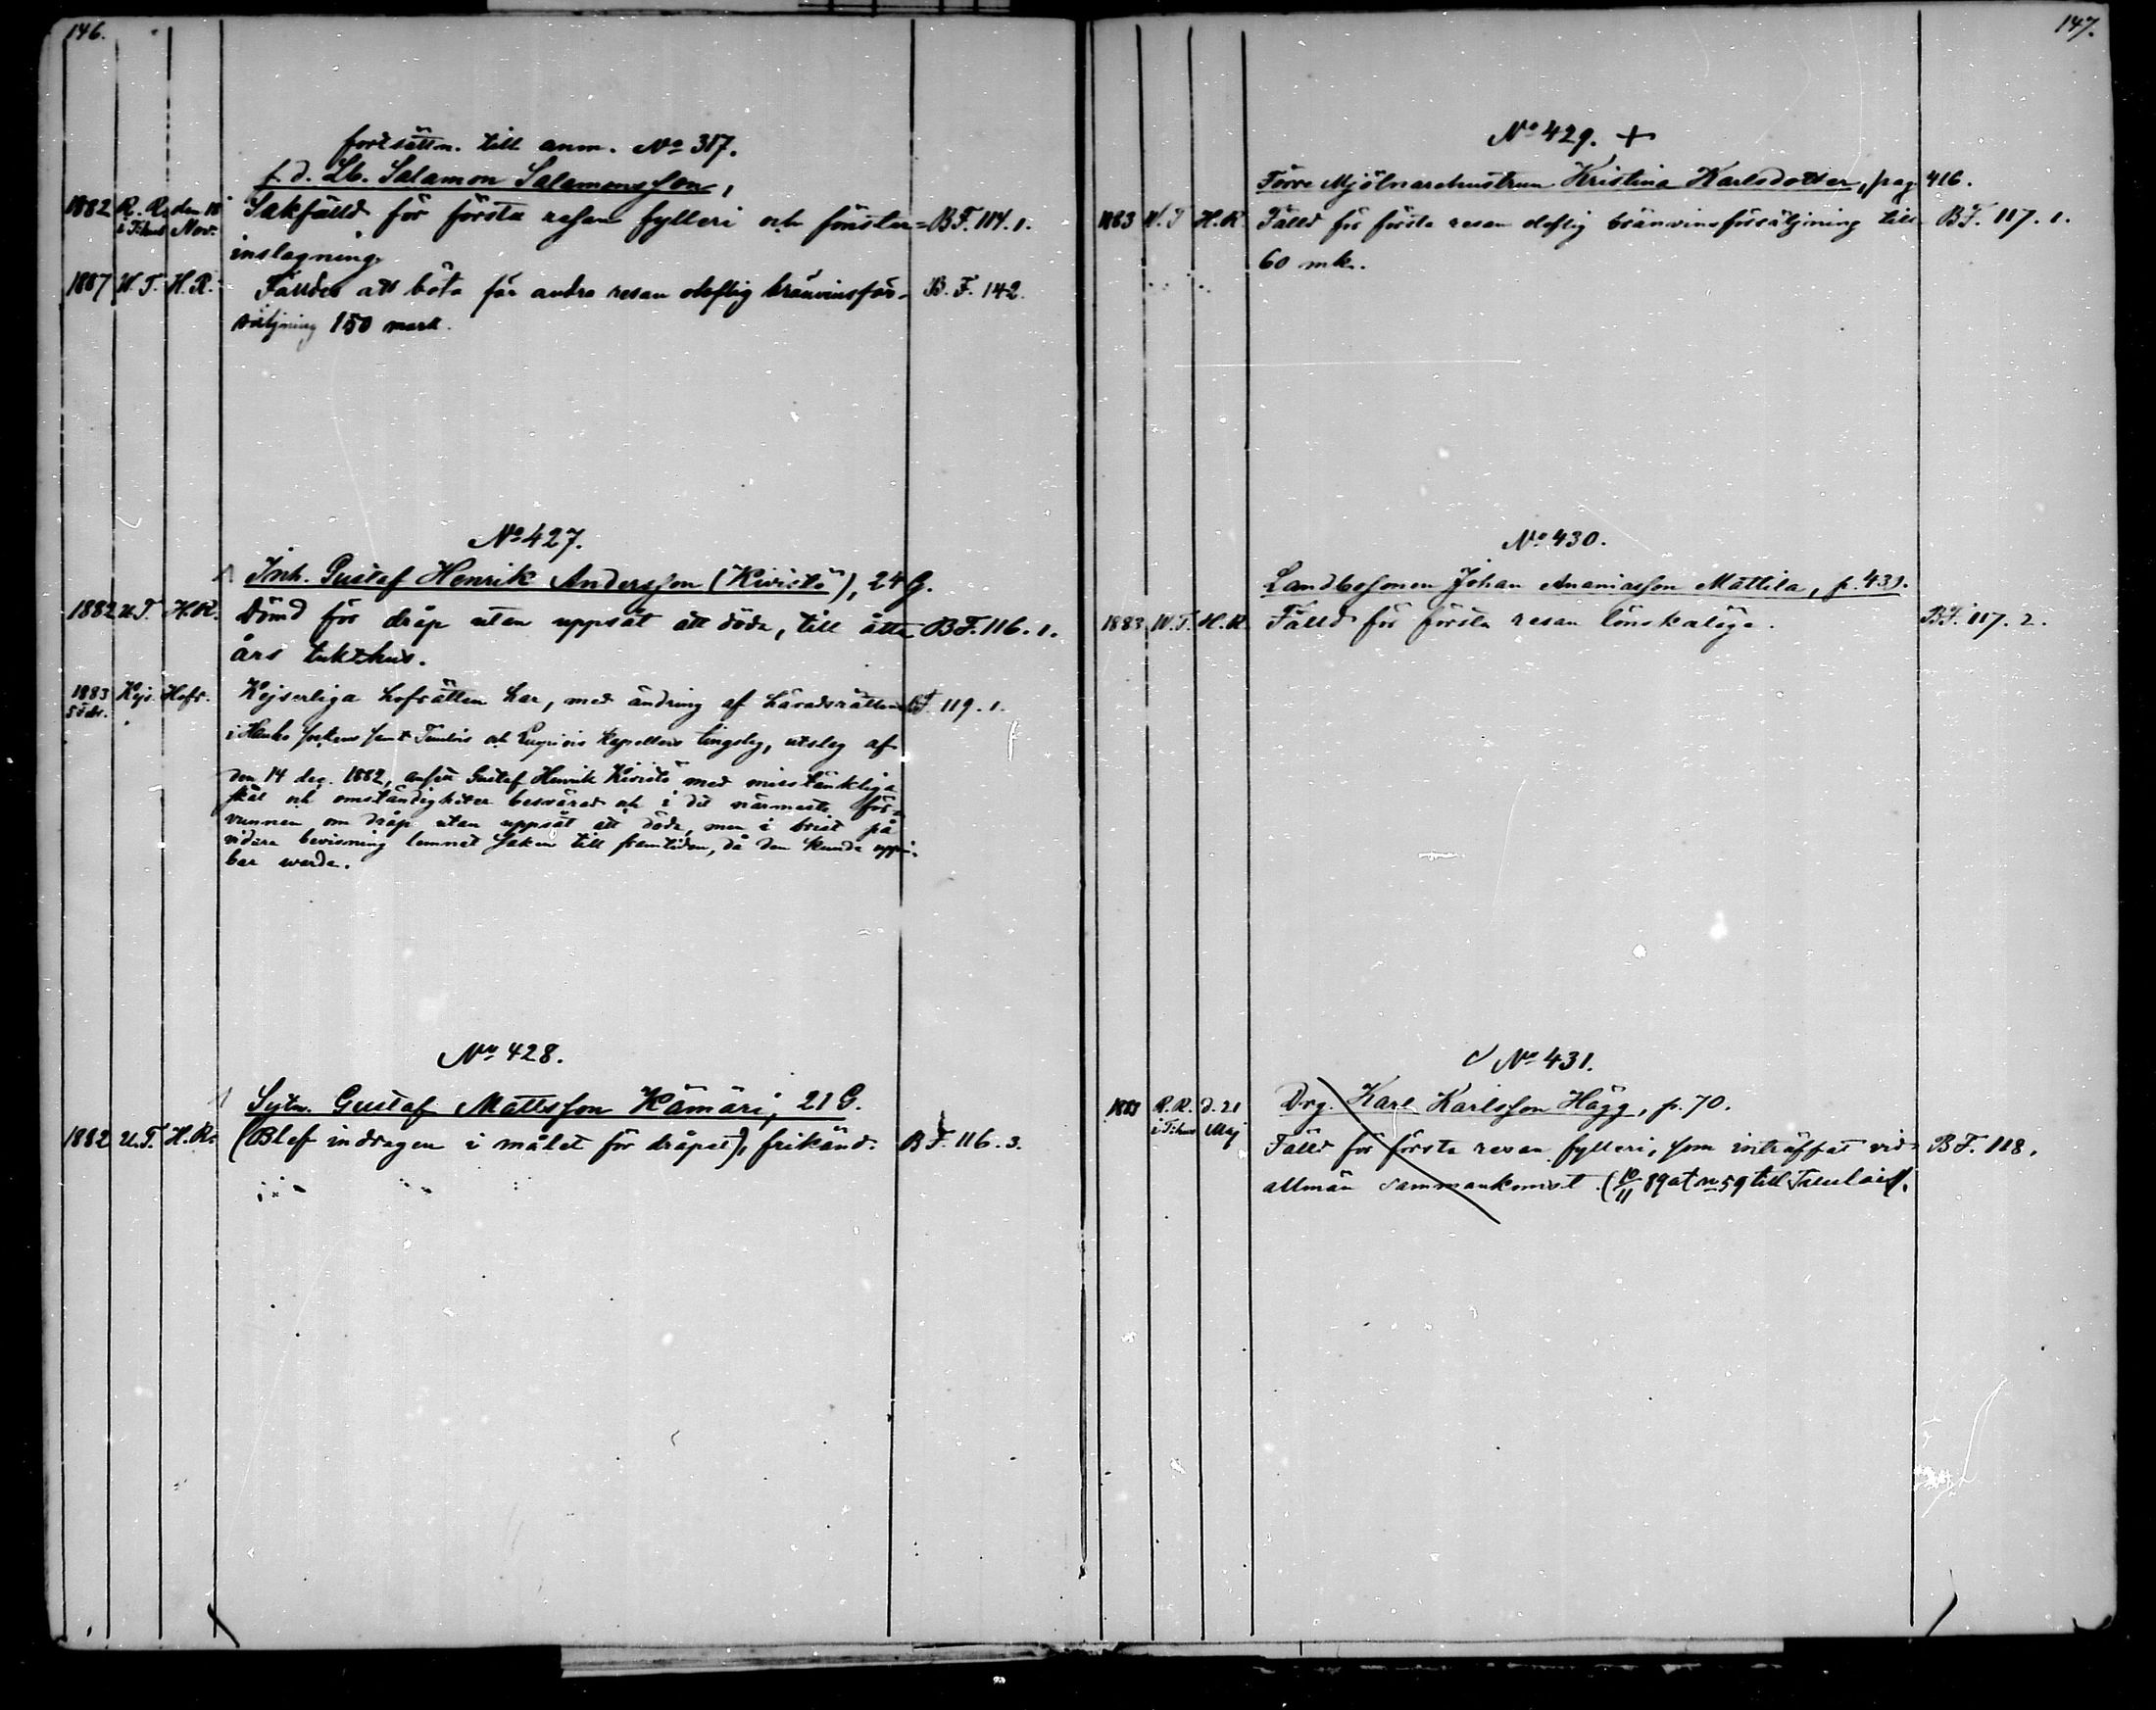 146.
fortsättn. till anm. No 317.
f. d. Lb. Salamon Salamonsson,
1882 R. R. i Tehus den 18 Nov. Sakfälld för första resan fylleri och fönster= B F. 114. 1.
inslagning.
1887 U. T. H. R. Fälldes att böta för andra resan olaflig bränvinsför- B. F. 142.
säljning 150 mark.
No 427.
Inh. Gustaf Henrik Andersson (Kivistö), 24 G.
1882 U. T. H. R. Dömd för dråp utan uppsåt att döda, till åtta B F. 116. 1.
års tukthus.
1883 Kejs. Hofr. Kejserliga hofrätten har, med ändring af häradsrättens B F. 119. 1.
i Hauho socken samt Tuulois och Kapellers tingslag, utslag af
den 14 dec. 1882, ansett Gustaf Henrik Kivistö med misstänkliga
skäl och omständigheter besvärad och i det närmaste för=
vunnen om dråp utan uppsåt att döda, men i brist på
vidare bevisning lemnat saken till framtiden, då den kunde uppen-
bar warda.
No 428.
Sytn. Gustaf Mattsson Hämäri, 21 G.
1882 U. T. H. R. (Blef indragen i målet för dråpet), frikänd. B F. 116. 3.
147.
No 429. +
Förre Mjölnarehustrun Kristina Karlsdotter, pag. 416.
1883 V. T. H. R. Fälld för första resan olaflig bränvinsförsäljning till B F. 117. 1.
60 mk.
No 430.
Landbosonen Johan Ananiasson Mattila, p. 439.
1883 V. T. H. R. Fälld för första resan lönskaläge. B F. 117. 2.
No 431.
Drg. Karl Karlsson Hägg, p. 70.
1883 R. R. i Tehus d. 21 Maj Fälld för första resan fylleri, som inträffat vid B F. 118.
allmän sammankomst. (10/11 89 at no 59 till Tuulois).